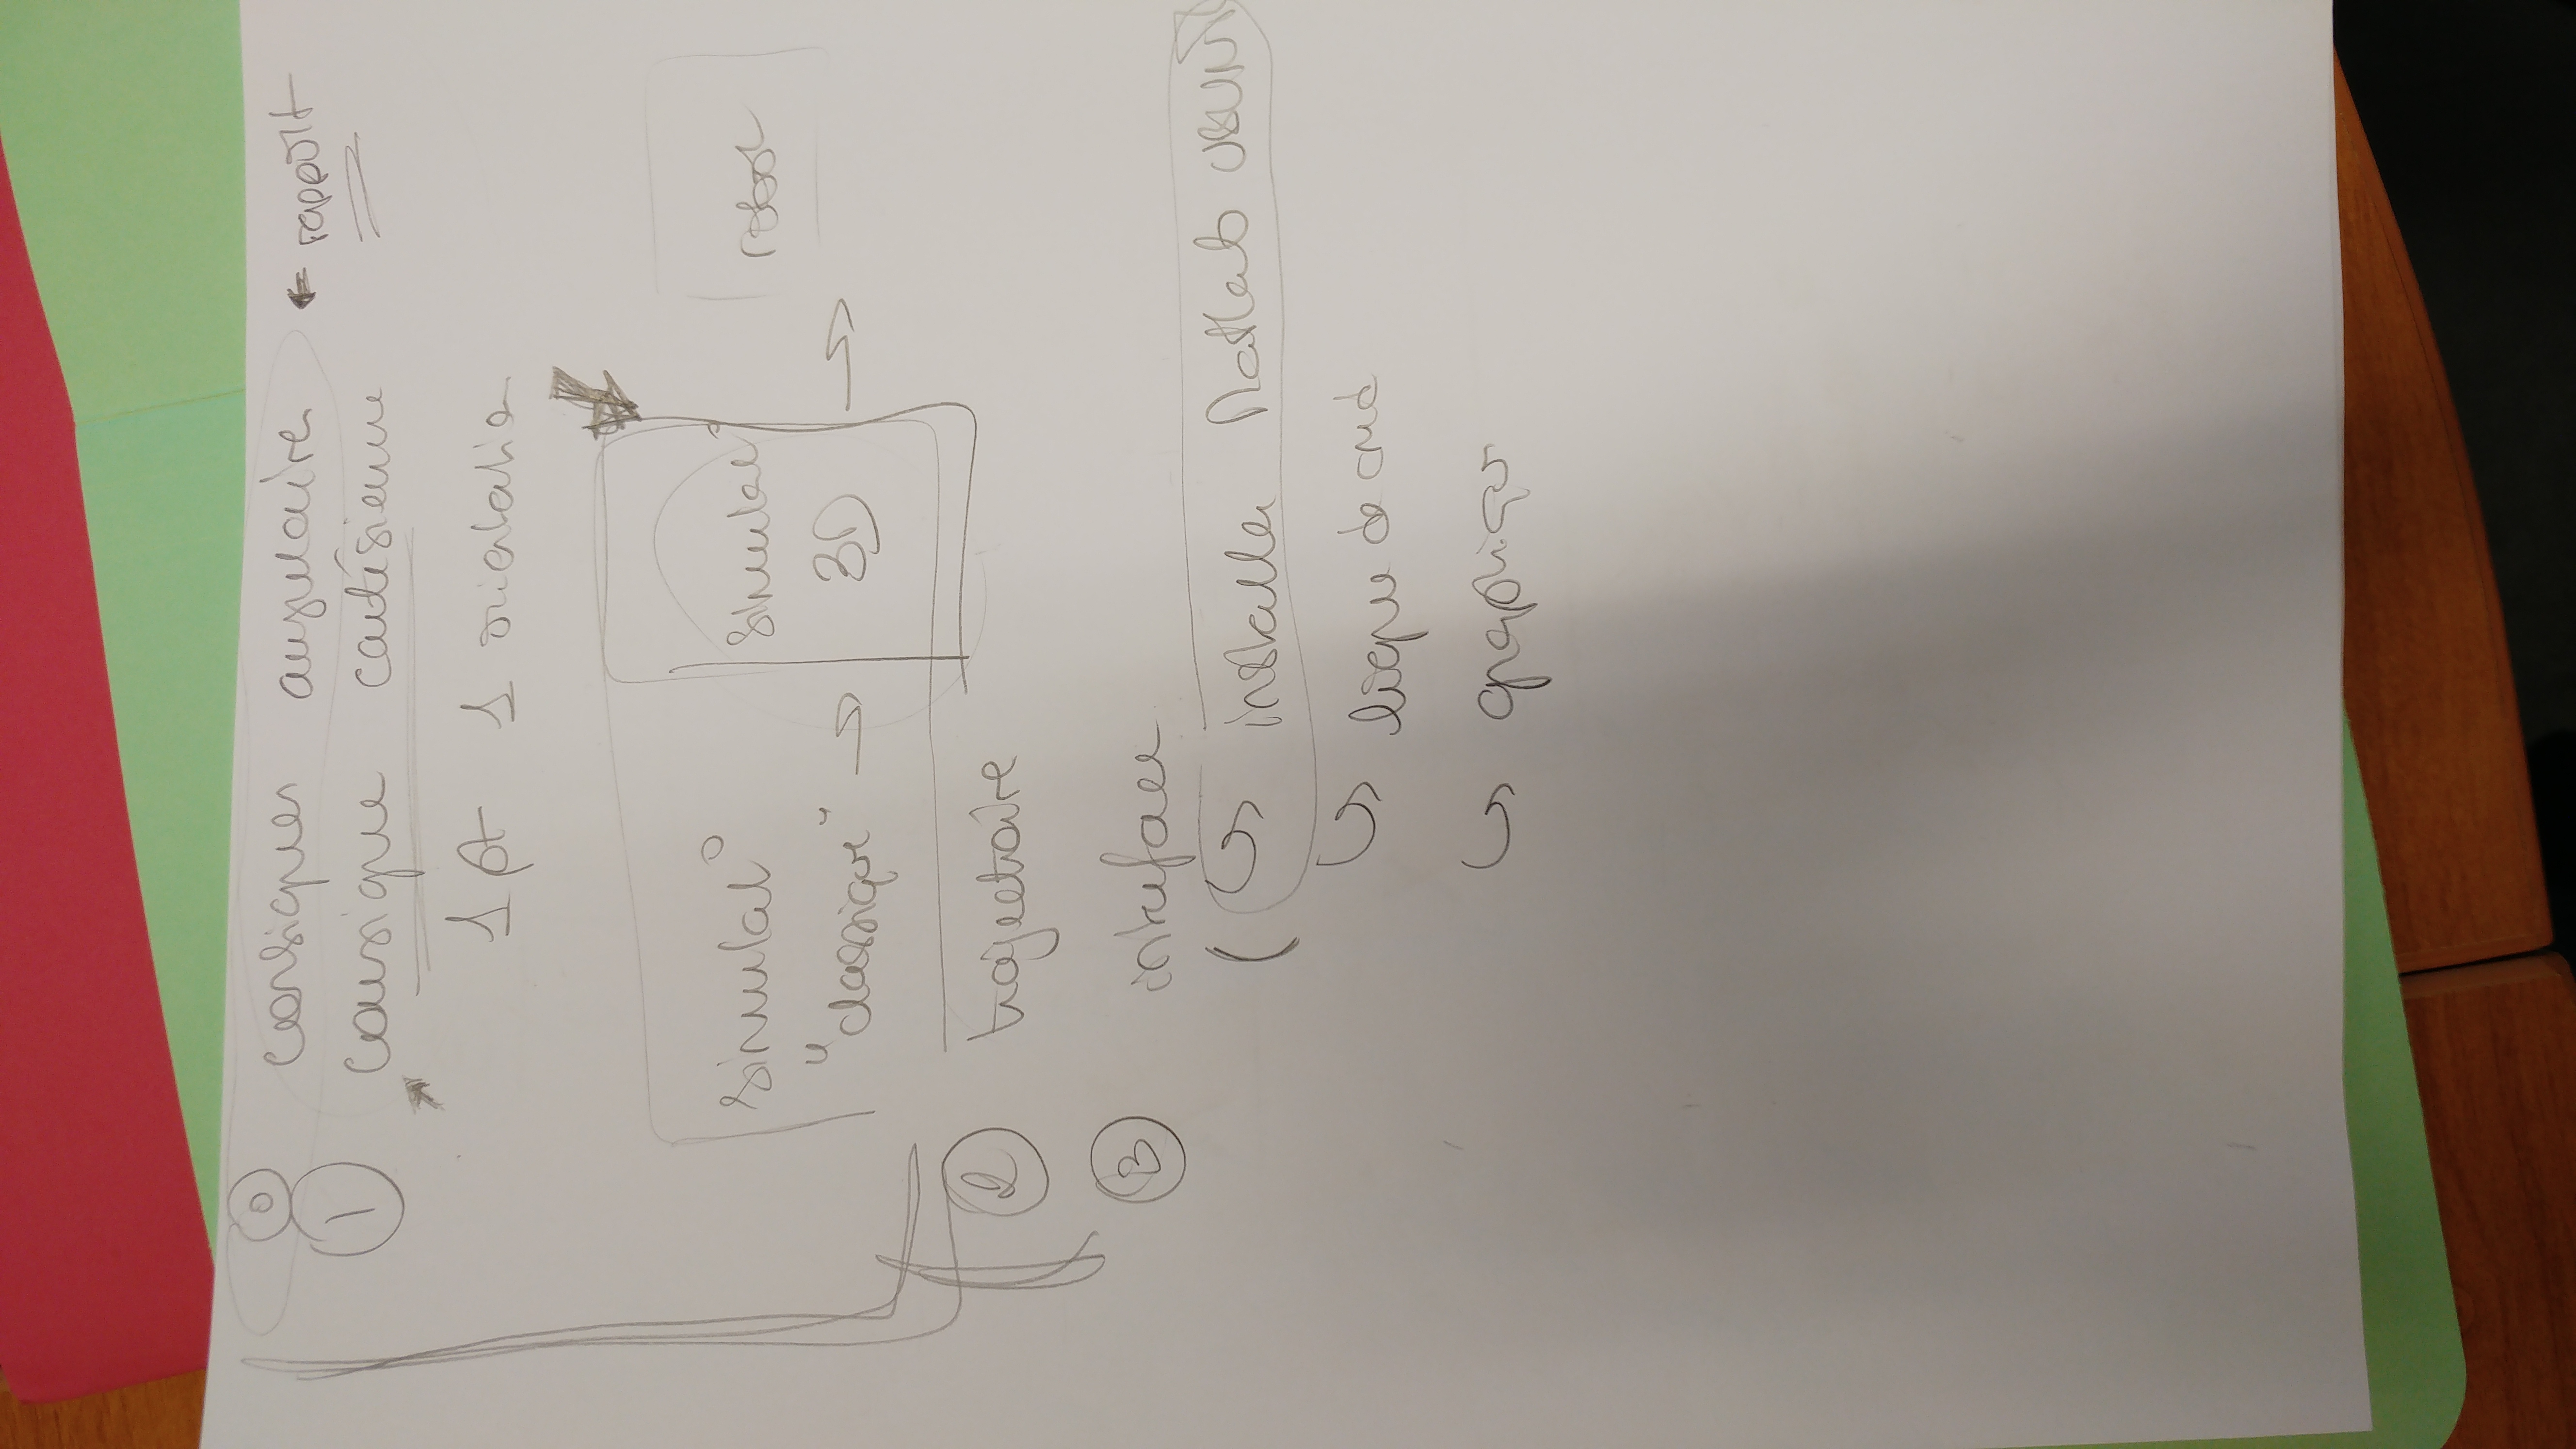 0 consignes angulaires ← rapport
1 consigne cartésienne
1 pt 1 orientation
simulat° simulat° robot
"classique" → 3D →
2 trajectoire
3 interface
( ↳ installer Matlab
↳ ligne de cmd
↳ graphique